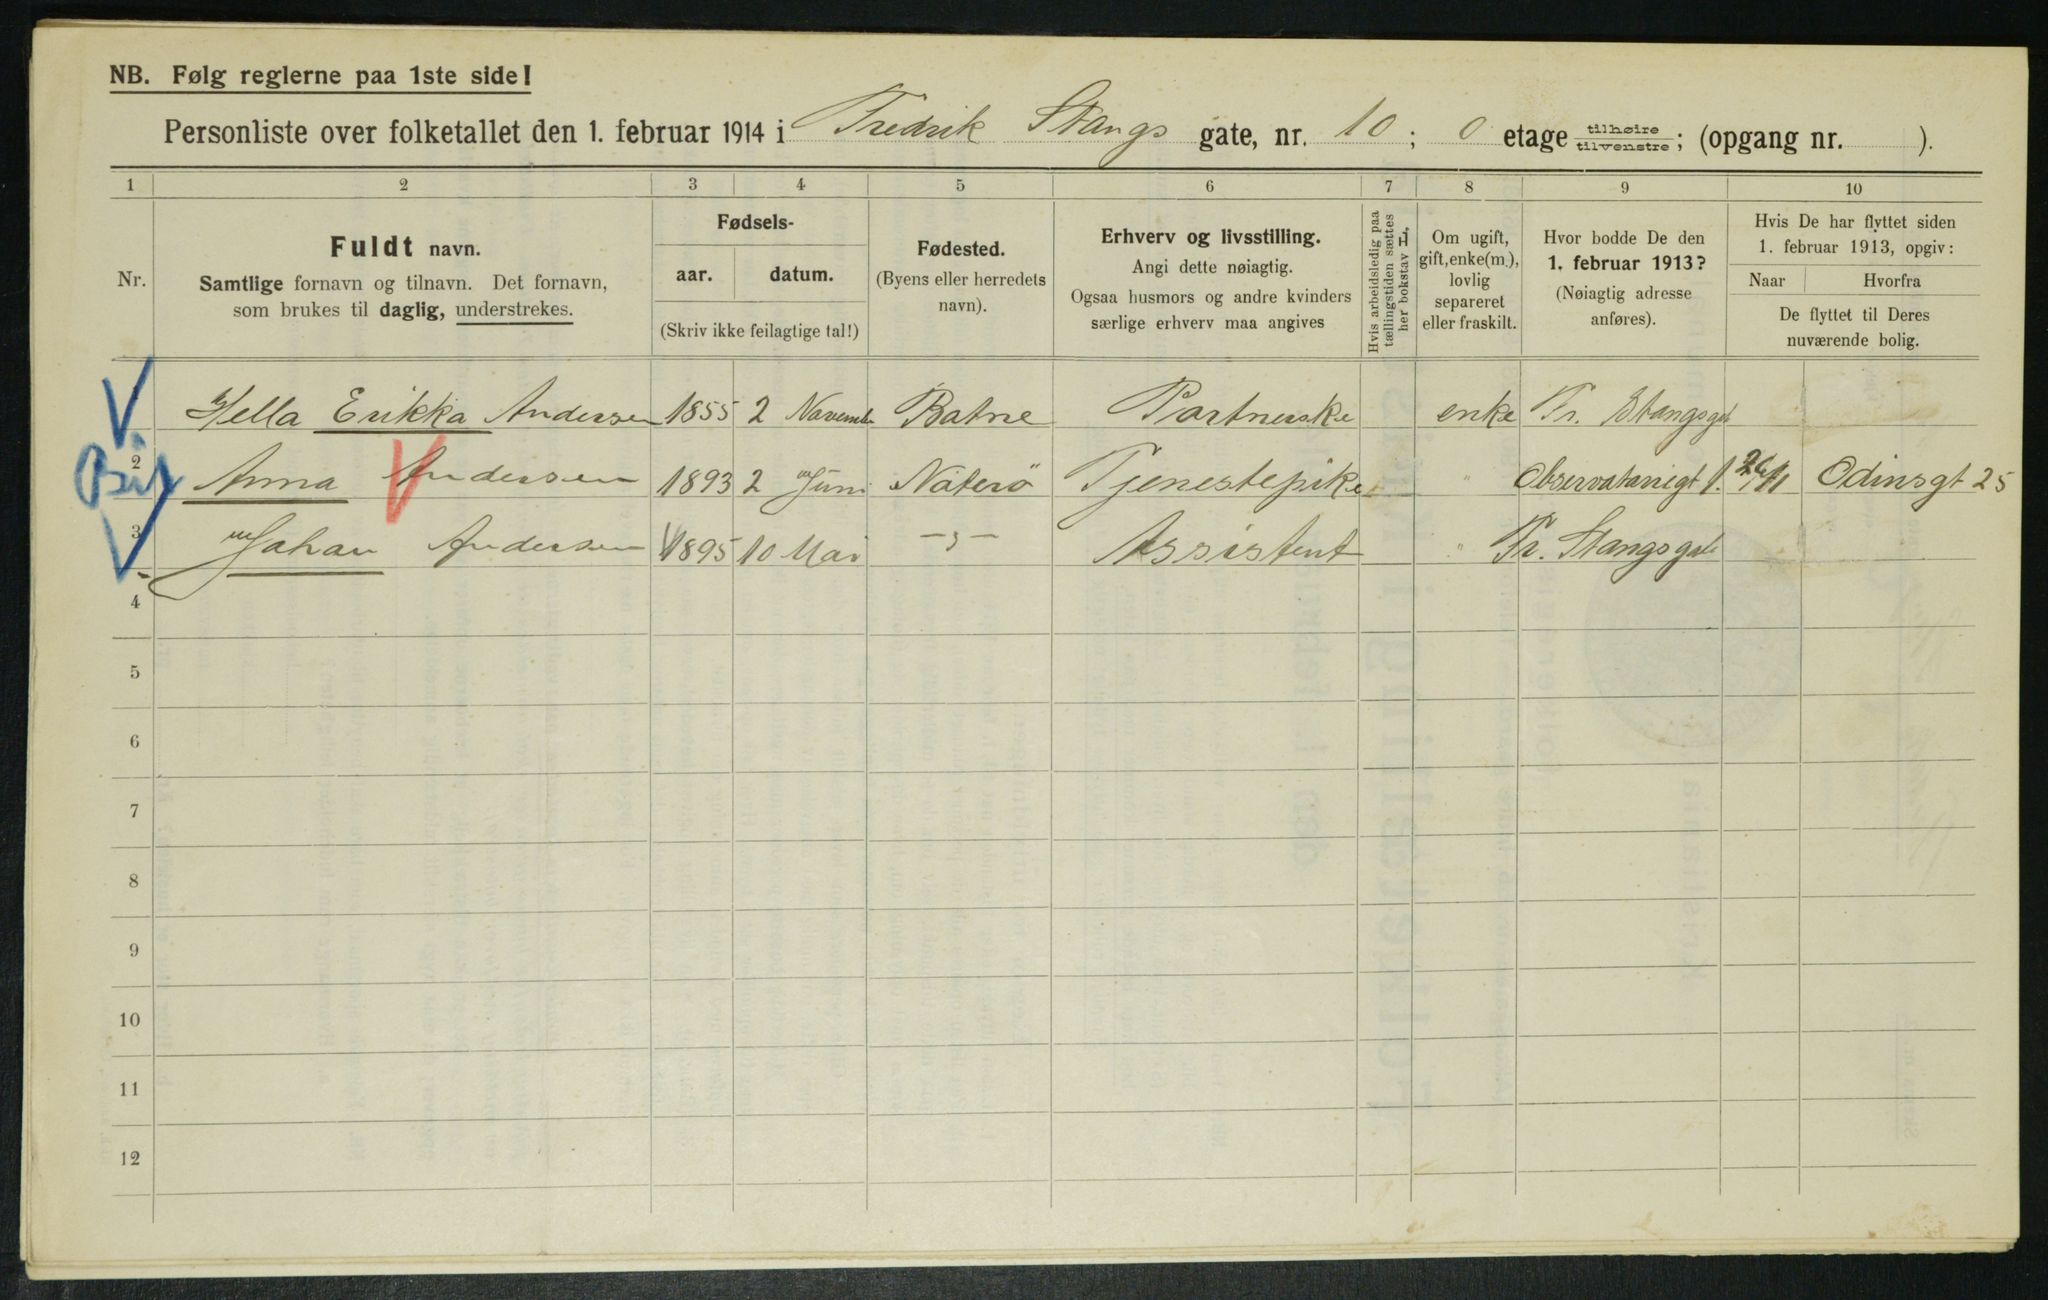 NB. Følg reglerne paa 1ste side!
Personliste over folketallet den 1. februar 1914 i Fredrik Stangs gate, nr. 10; 0 etage tilhøire tilvenstre; (opgang nr. ).
1 2 3 4 5 6 7 8 9 10
Nr.
Fuldt navn.
Samtlige fornavn og tilnavn. Det fornavn,
som brukes til daglig, understrekes.
Fødsels-
aar. datum.
(Skriv ikke feilagtige tal!)
Fødested.
(Byens eller herredets
navn).
Erhverv og livsstilling.
Angi dette nøiagtig.
Ogsaa husmors og andre kvinders
særlige erhverv maa angives
Hvis arbeidsledig paa
tællingstiden sættes
her bokstav L,
Om ugift,
gift, enke(m.),
lovlig
separeret
eller fraskilt.
Hvor bodde De den
1. februar 1913?
(Nøiagtig adresse
anføres).
Hvis De har flyttet siden
1. februar 1913, opgiv:
Naar Hvorfra
De flyttet til Deres
nuværende bolig.
1 Hella Erikka Andersen 1855 2 November Portnerske enke Fr. Stangsgt
2 Anna Andersen 1893 2 Juni Nøterö Tjenestepike " Observatoriegt 1. 26/11 Odinsgt 25
3 Johan Andersen 1895 10 Mai -"- Assistent " Fr. Stangsgate
4
5
6
7
8
9
10
11
12